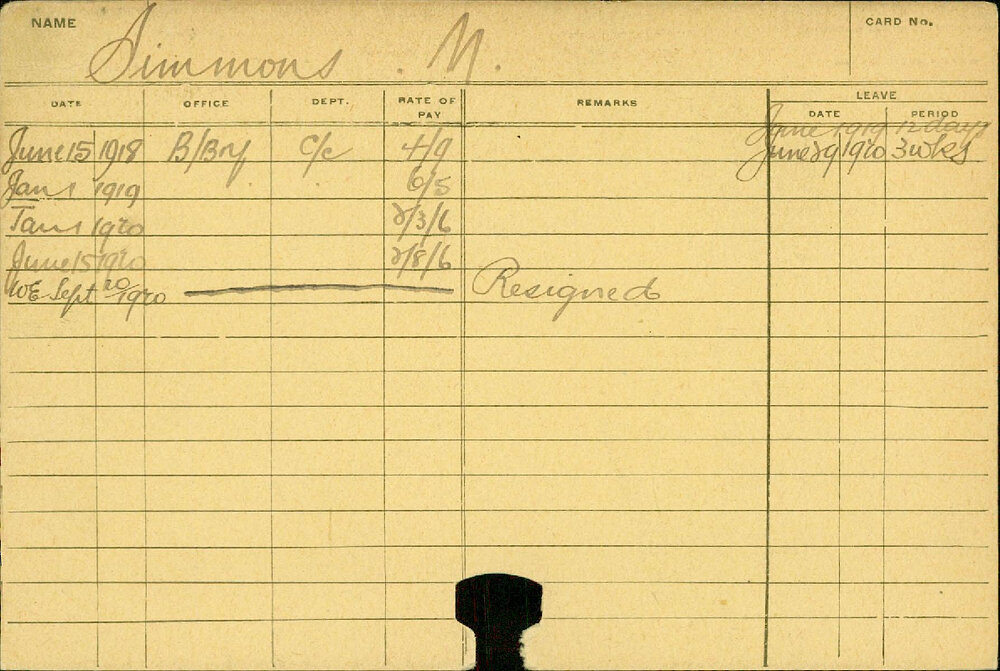 NAME Simmons . M. CARD No.
DATE OFFICE DEPT. RATE OF PAY REMARKS LEAVE
DATE PERIOD
June 1919 12 days
June 15 1918 B/Bry C/c 4/9 June 29 1920 3 wks
Jan 1 1919 6/5
Jan 1 1920 2/3/6
June 15 1920 2/8/6
WE Sept 20/1920 Resigned